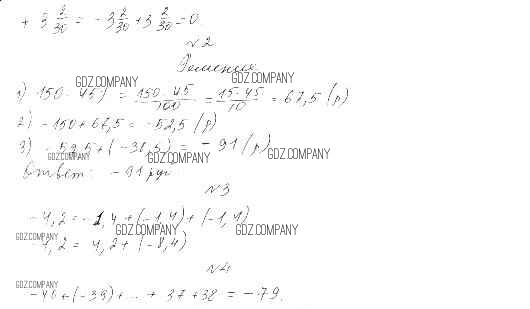 + 3 2/30 = -3 2/30 + 3 2/30 = 0.
№2
Решение
GDZ.COMPANY GDZ.COMPANY
1) 150 · 45% = 150 · 45/100 = 15 · 45/10 = 67,5 (р)
2) -150 + 67,5 = -52,5 (р)
3) -52,5 + (-38,5) = -91 (р)
GDZ.COMPANY GDZ.COMPANY GDZ.COMPANY
Ответ: -91 руб
№3
-4,2 = -1,4 + (-1,4) + (-1,4)
GDZ.COMPANY GDZ.COMPANY GDZ.COMPANY
-4,2 = 4,2 + (-8,4)
№4
GDZ.COMPANY
-40 + (-39) + ... + 37 + 38 = -79.